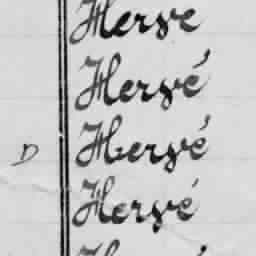 Herve
Hervé
D Hervé
Hervé